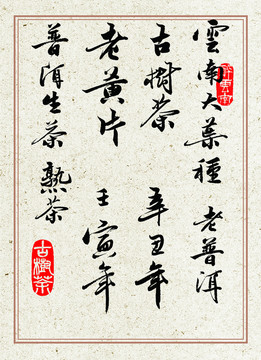 雲南大葉種 老普洱
古樹茶 辛丑年
老黃片 壬寅年
普洱生茶 熟茶
古樹茶